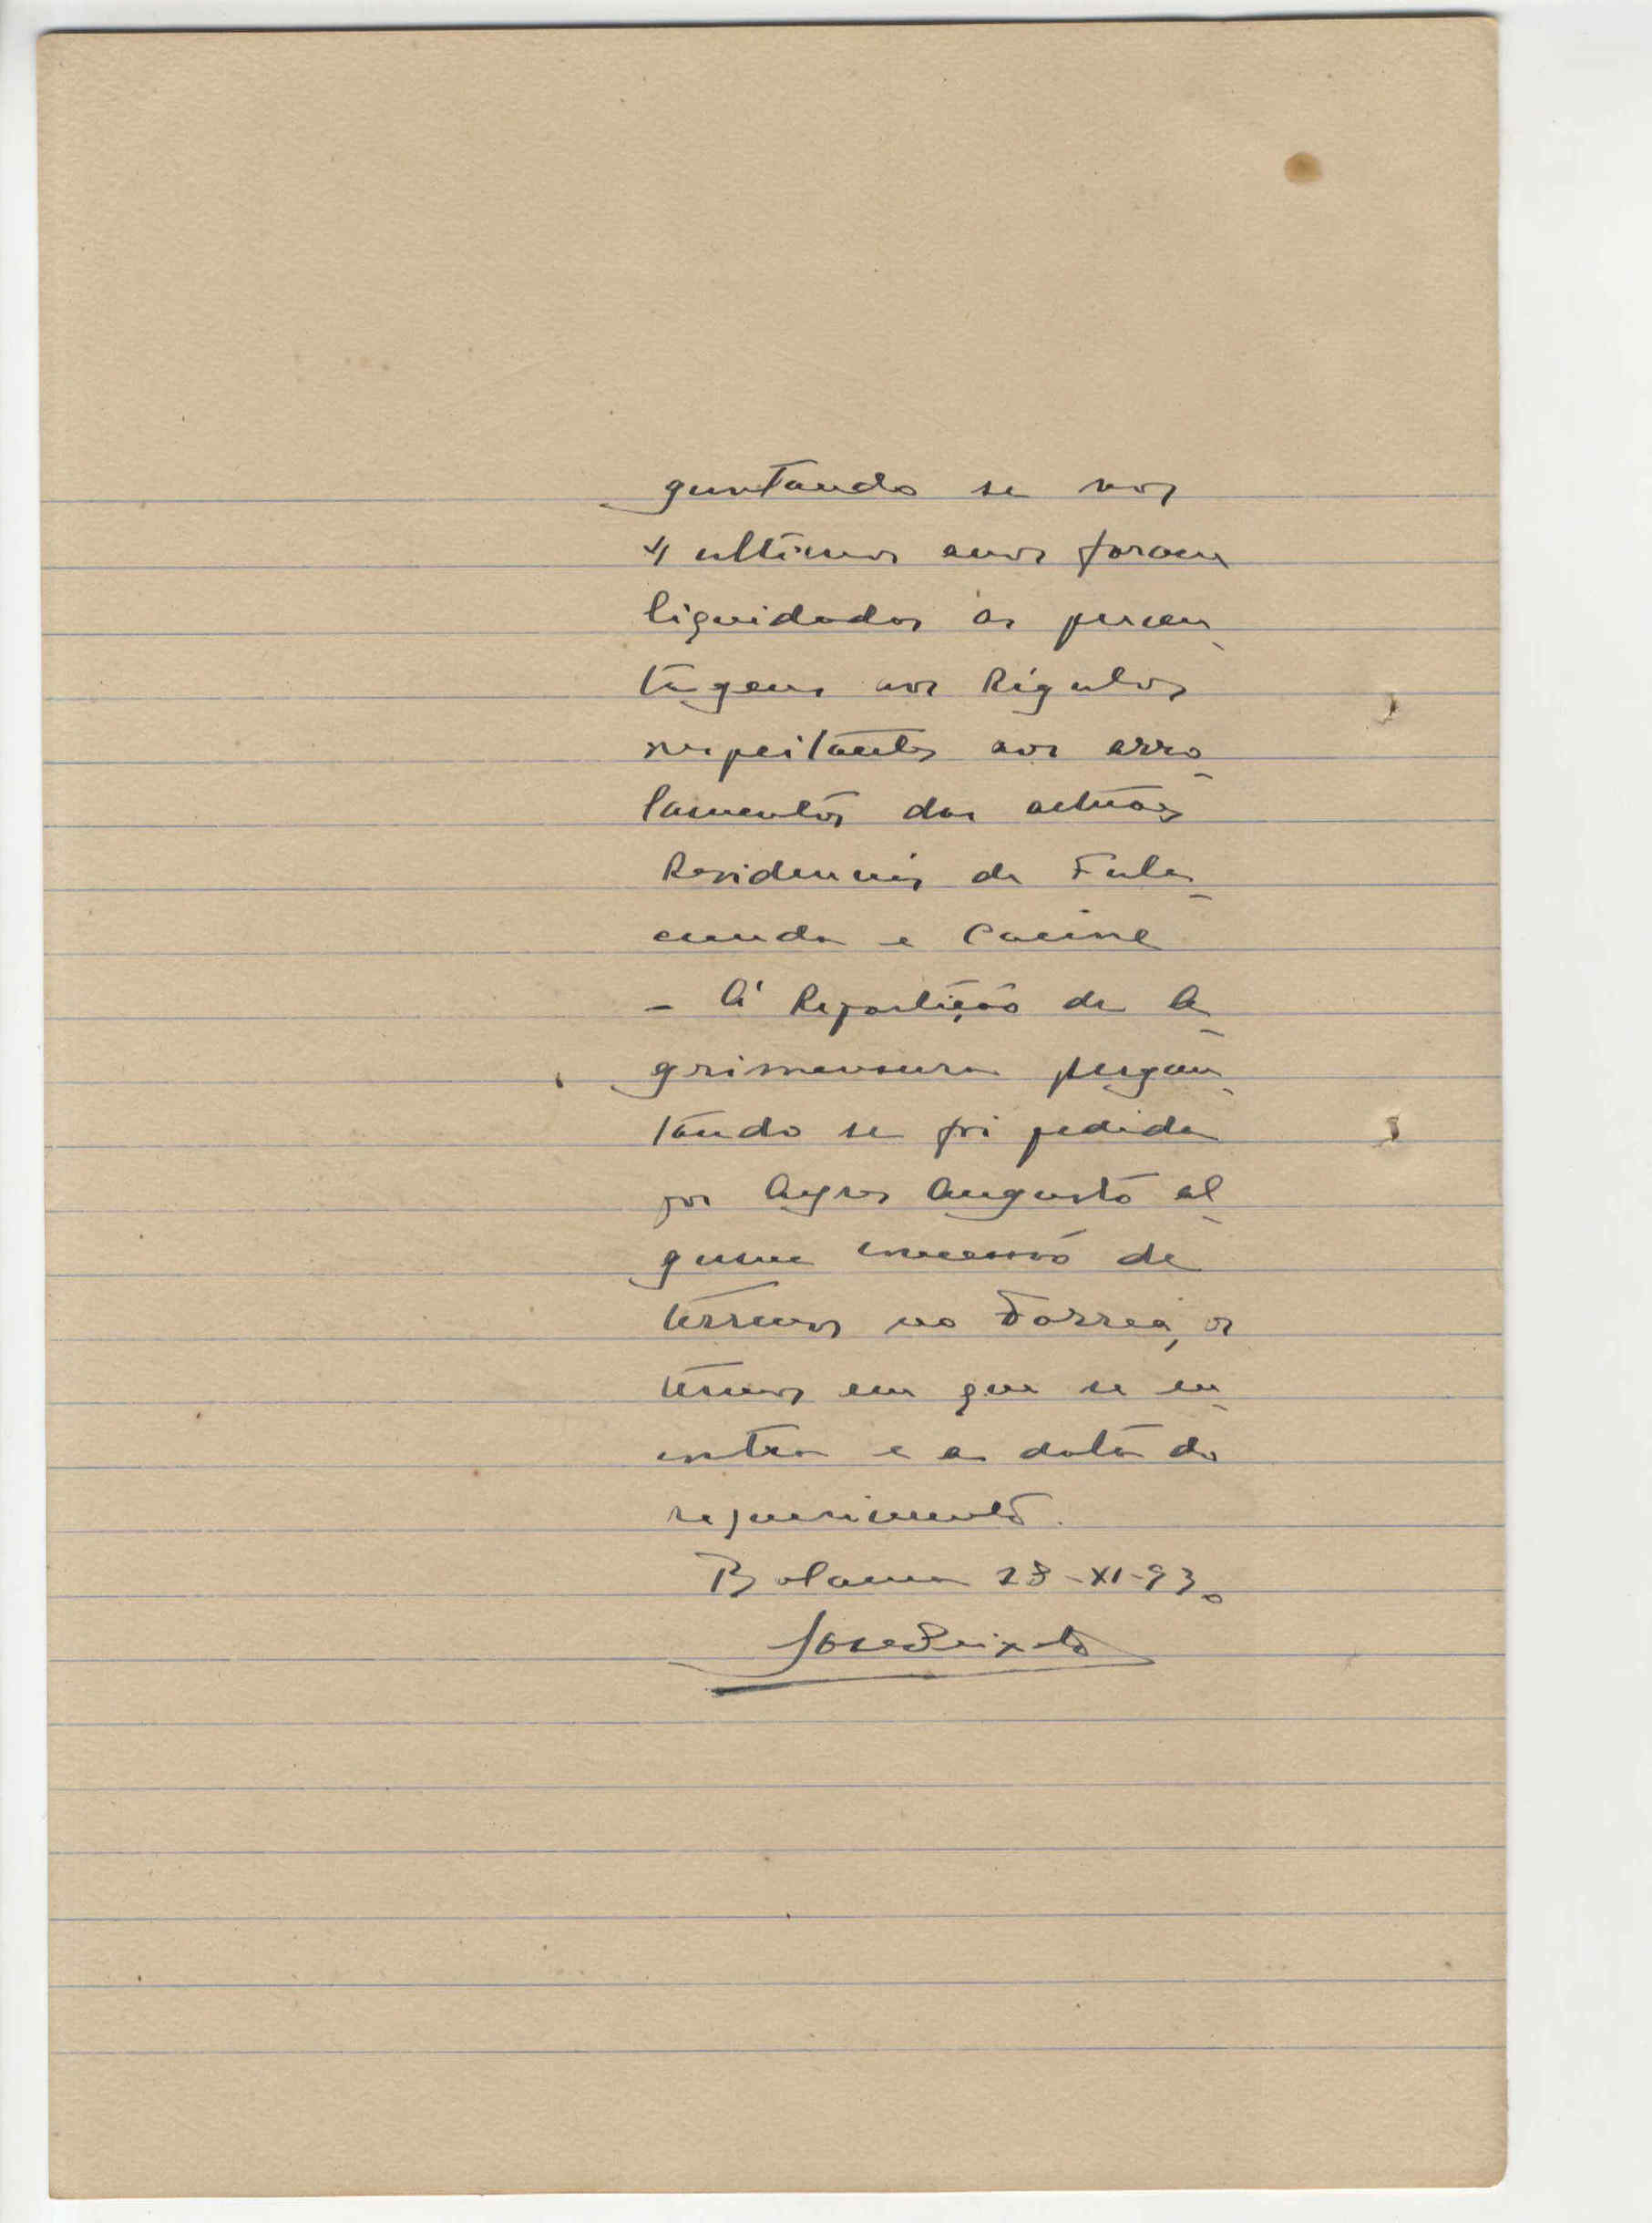 guntando se nos
4 ultimos anos foram
liquidadas as percen-
tagens aos Régulos
respeitantes aos arro-
lamentos das actuaes
Residencias de Fula-
cunda e Cacine
- Á Repartição de A-
grimensura pergun-
tando se foi pedida
por Ayres Augusto al-
guma concessão de
terrenos no Forreá, os
termos em que se en-
contra e a data do
requerimento.
Bolama 28-XI-930
José Peixoto